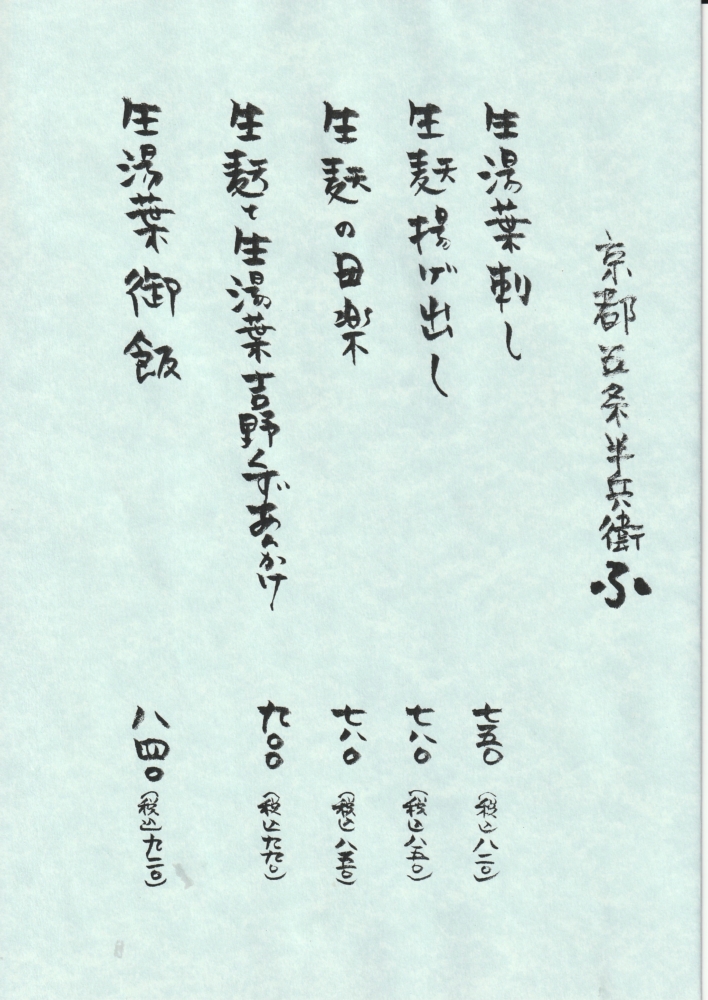 京都五条半兵衛ふ
生湯葉刺し 七五〇 (税込八二〇)
生麩揚げ出し 七八〇 (税込八五〇)
生麩の田楽 七八〇 (税込八五〇)
生麩と生湯葉吉野くずあんかけ 九〇〇 (税込九九〇)
生湯葉御飯 八四〇 (税込九二〇)